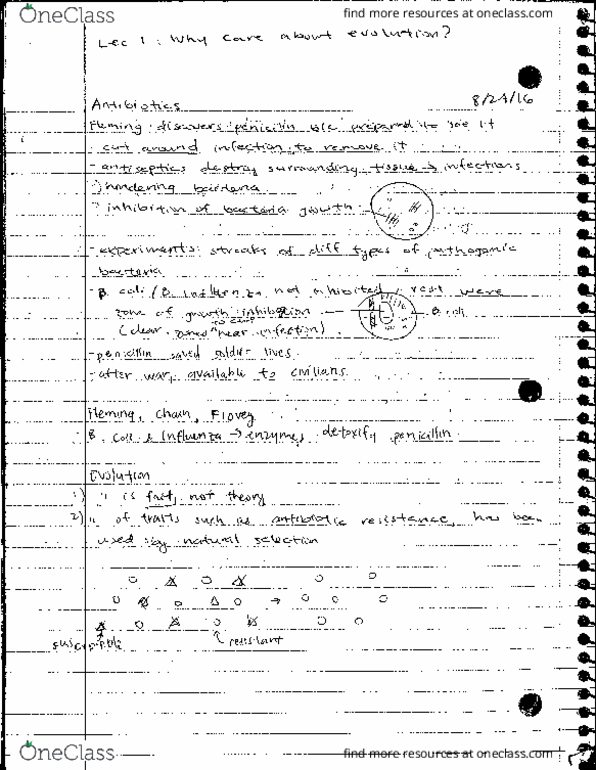 OneClass
find more resources at oneclass.com
Lec 1 : Why care about evolution?
8/24/16
Antibiotics
Fleming: discovers penicilin b/c prepared to see it
- cut around infection to remove it
- antiseptics destroy surrounding tissue → infections
hindering bacteria
inhibition of bacteria growth
- experiments: streaks of diff types of pathogenic
bacteria
- B. coli / B. influenza not inhibited, rest were
zone of growth inhibition
B. coli
(clear zones near infection)
- penicillin saved soldier lives
- after war, available to civilians
Fleming, Chain, Florey
B. coli & Influenza → enzymes detoxify penicillin
Evolution
1) " is fact, not theory
2) " of traits such as antibiotic resistance, has been
used by natural selection
susceptible
resistant
OneClass
find more resources at oneclass.com